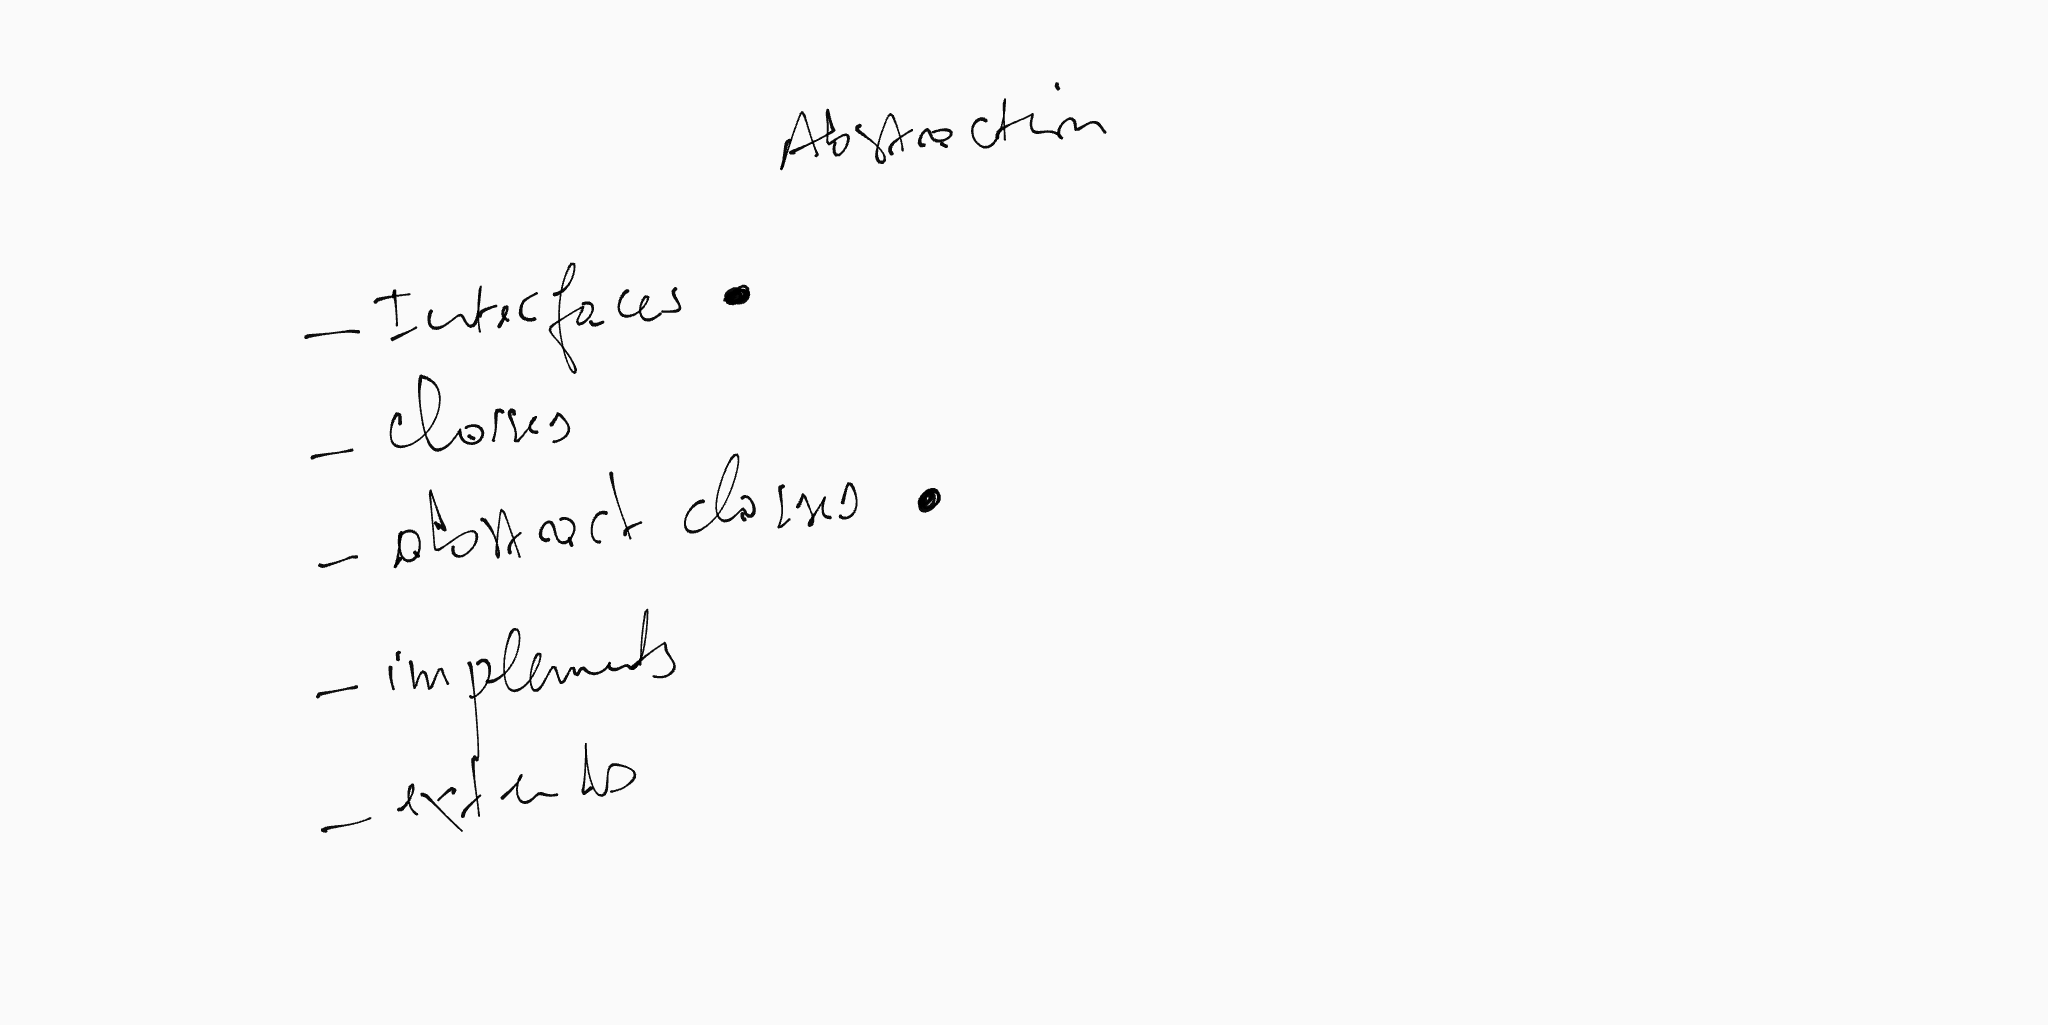 Abstraction
- Interfaces •
- classes
- abstract classes •
- implements
- extends